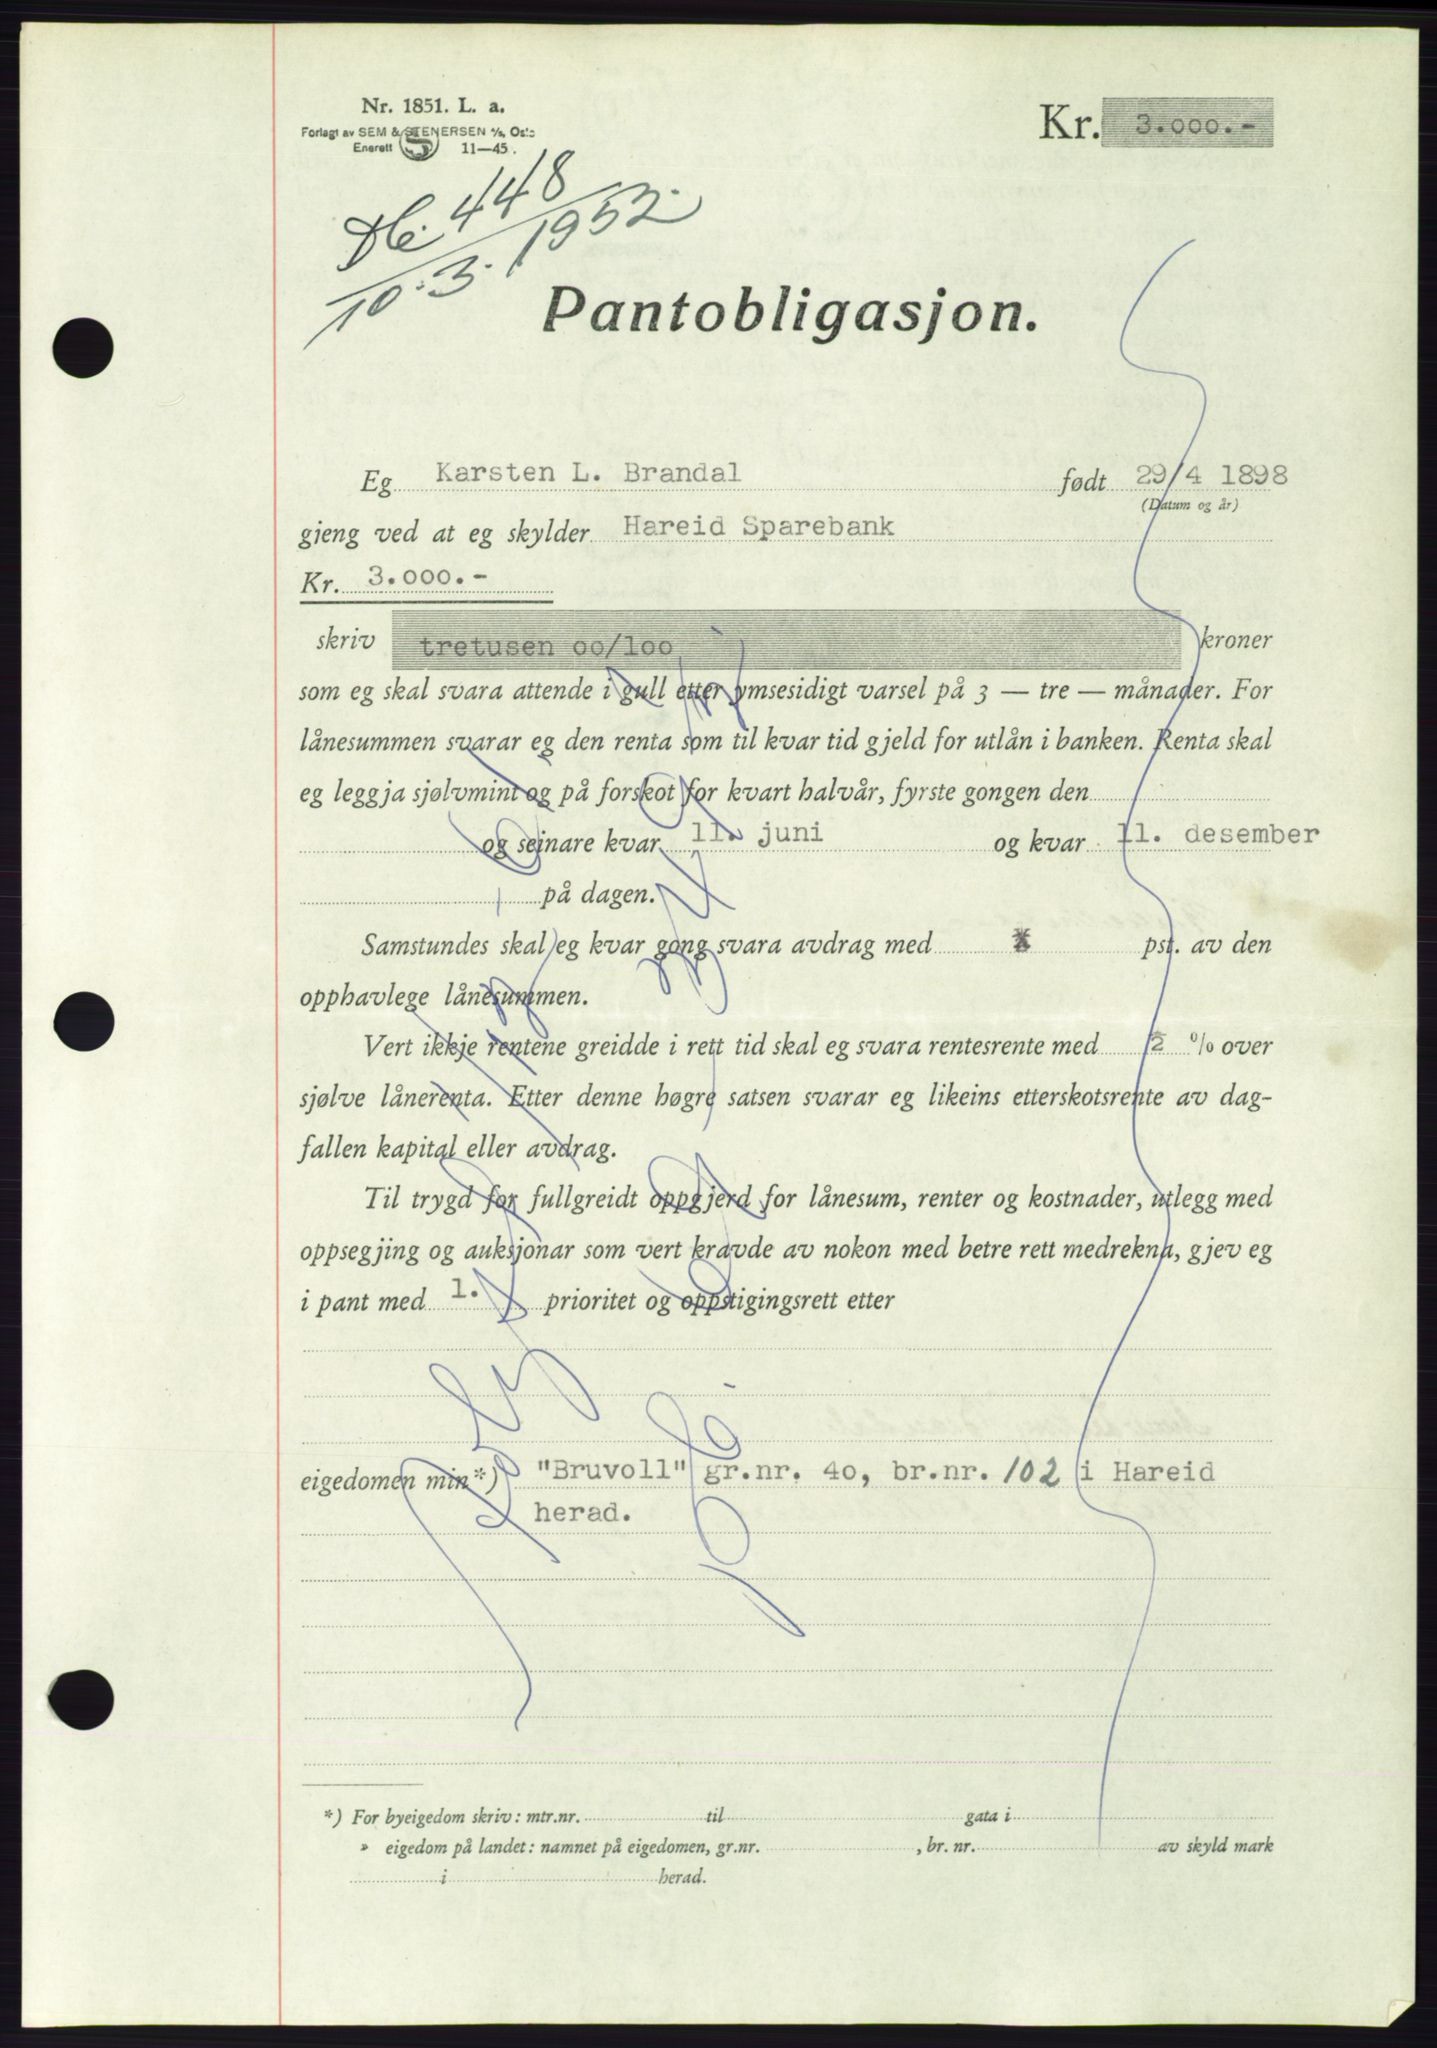 Nr. 1851. L. a.
Forlagt av SEM & STENERSEN A/S, Oslo
Enerett 11—45.
Kr. 3.000.-
448
10.3.1952.
Pantobligasjon.
Eg Karsten L. Brandal født 29/4 1898
(Datum og år)
gjeng ved at eg skylder Hareid Sparebank
Kr. 3.000.-
skriv tretusen oo/loo kroner
som eg skal svara attende i gull etter ymsesidigt varsel på 3 — tre — månader. For
lånesummen svarar eg den renta som til kvar tid gjeld for utlån i banken. Renta skal
eg leggja sjølvmint og på forskot for kvart halvår, fyrste gongen den
og seinare kvar 11. juni og kvar 11. desember
på dagen.
Samstundes skal eg kvar gong svara avdrag med pst. av den
opphavlege lånesummen.
Vert ikkje rentene greidde i rett tid skal eg svara rentesrente med 2 % over
sjølve lånerenta. Etter denne høgre satsen svarar eg likeins etterskotsrente av dag-
fallen kapital eller avdrag.
Til trygd for fullgreidt oppgjerd for lånesum, renter og kostnader, utlegg med
oppsegjing og auksjonar som vert kravde av nokon med betre rett medrekna, gjev eg
i pant med 1. prioritet og oppstigingsrett etter
eigedomen min*) "Bruvoll" gr.nr. 4o, br.nr. 102 i Hareid
herad.
*) For byeigedom skriv: mtr.nr. til gata i
» eigedom på landet: namnet på eigedomen, gr.nr. , br. nr. av skyld mark
i herad.